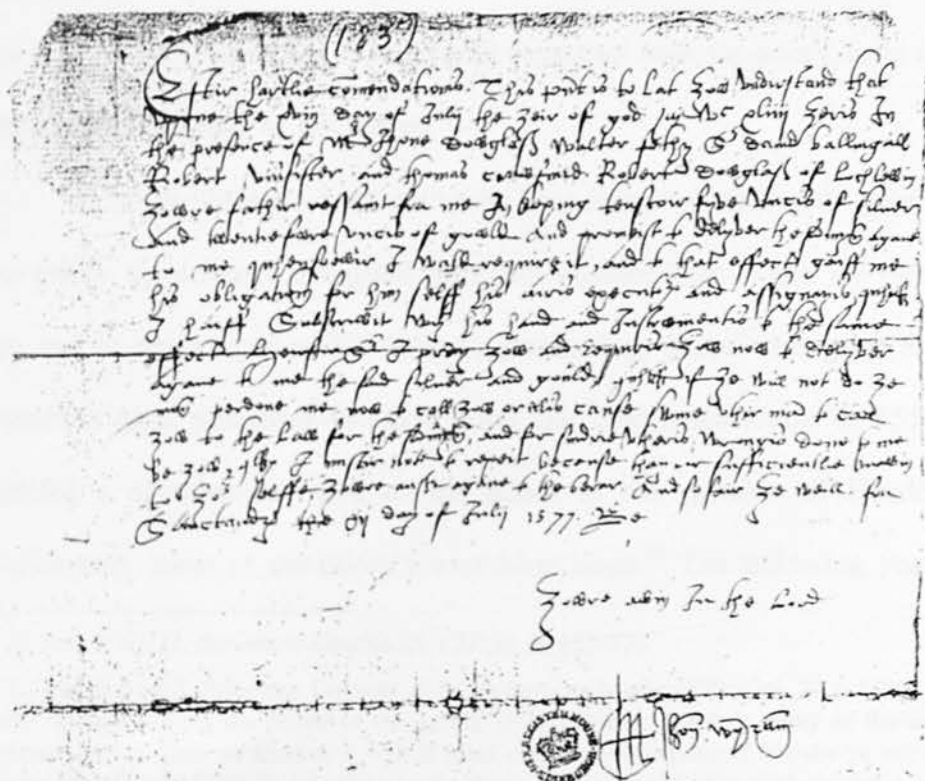 (183)
Eftir hartlie comendations. This pnt is to lat zow vndirstand that
vpone the xviij day of Julij the zeir of god zeris In
the presence of Mr Jhone dowglass walter fethy Sr dauid ballingall
Robert and thomas Robert dowglass of Lochlewin
zowre father ressauit fra me In keping fyve vncis of siluer
And twentie fowre vncis of gowld And promist to delyver the ayane
to me quhensoevir I wald requir it, and to that effect gaiff me
his obligation for him selff his airis executris and assignais quhilk
I haiff Subscrivit wyt his hand and Instrumentis to the same
effect Heirfore Sr I pray zow and requiris zow now to delyver
agane to me the said siluer and gould, quhilk if ze will not do ze
man perdone me now to call zow or ellis cause sume vthir man to call
zow to the Law for the and for sindrie vtheris wrangis done to me
be zow, I not to repeit because thay ar sufficientlie knawin
to zor selffe. zowre ansr agane to the berar And so fair ze weill. fra
Sanctandrs the xj day of Julij 1577. Be
zowre awin In the Lord
M Jhon wynram